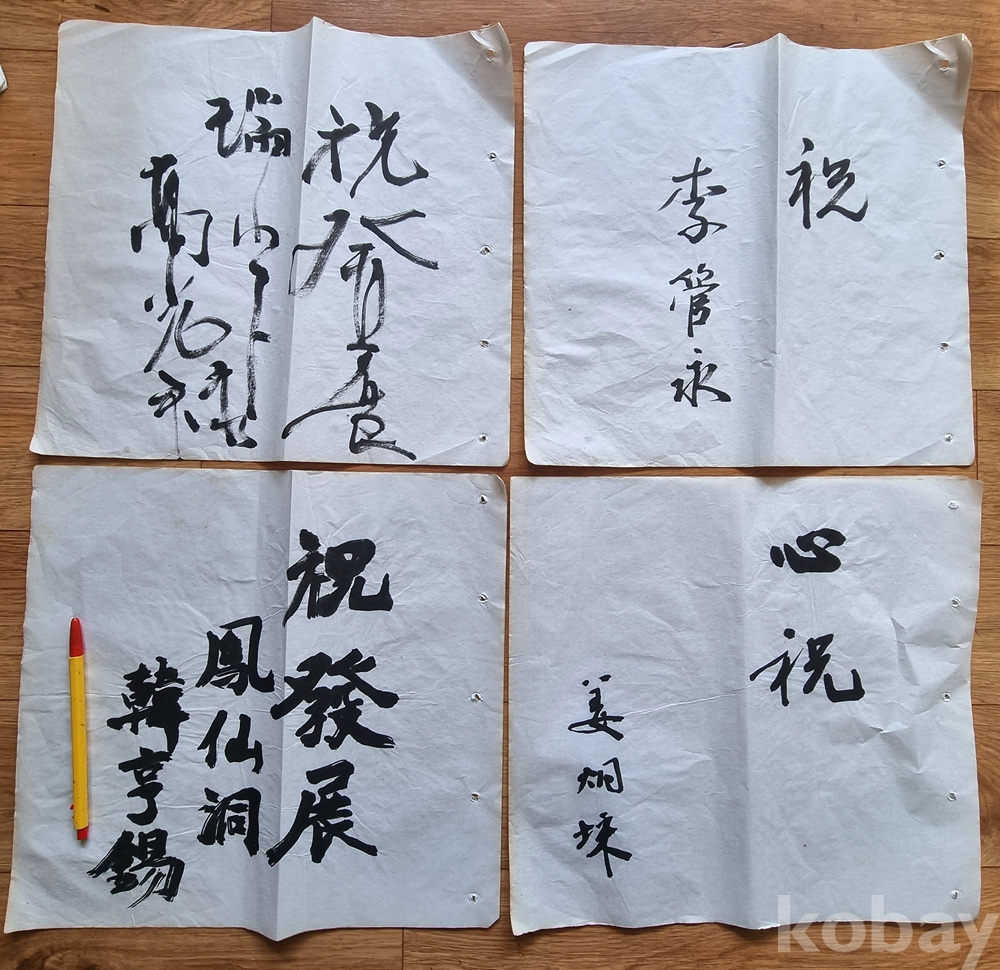 祝發展
瑞
高光
祝
李管永
祝發展
鳳仙洞
韓亨錫
心祝
姜炯
kobay